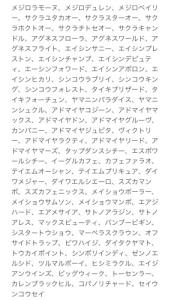 メジロラモーヌ、メジロデュレン、メジロベイリ
ー、サクラユタカオー、サクラスターオー、サク
ラホクトオー、サクラチトセオー、サクラキャン
ドル、アグネスフローラ、アグネスワールド、ア
グネスフライト、エイシンサニー、エイシンプレ
ストン、エイシンチャンプ、エイシンデピュテ
ィ、エーシンフォワード、エイシンアポロン、エ
イシンヒカリ、シンコウラブリイ、シンコウキン
グ、シンコウフォレスト、タイキブリザード、タ
イキフォーチュン、ヤマニンパラダイス、ヤマニ
ンシュクル、アドマイヤコジーン、アドマイヤマ
ックス、アドマイヤドン、アドマイヤグルーヴ、
カンパニー、アドマイヤジュピタ、ヴィクトリ
ー、アドマイヤラクティ、アドマイヤリード、ア
ドマイヤマーズ、タップダンスシチー、エスポワ
ールシチー、イーグルカフェ、カフェファラオ、
テイエムオーシャン、テイエムプリキュア、ダイ
ワメジャー、ダイワエルシエーロ、スズカマン
ボ、スズカフェニックス、メイショウボーラー、
メイショウサムソン、メイショウマンボ、エアジ
ハード、エアメサイア、サトノアラジン、サトノ
アレス、マックスビューティ、バンブービギン、
シスタートウショウ、マーベラスクラウン、オフ
サイドトラップ、ビワハイジ、ダイタクヤマト、
トウカイポイント、シンボリインディ、ゼンノエ
ルシド、ツルマルボーイ、ヒシミラクル、エイジ
アンウインズ、ビッグウィーク、トーセンラー、
カレンブラックヒル、コパノリチャード、セイウ
ンコウセイ